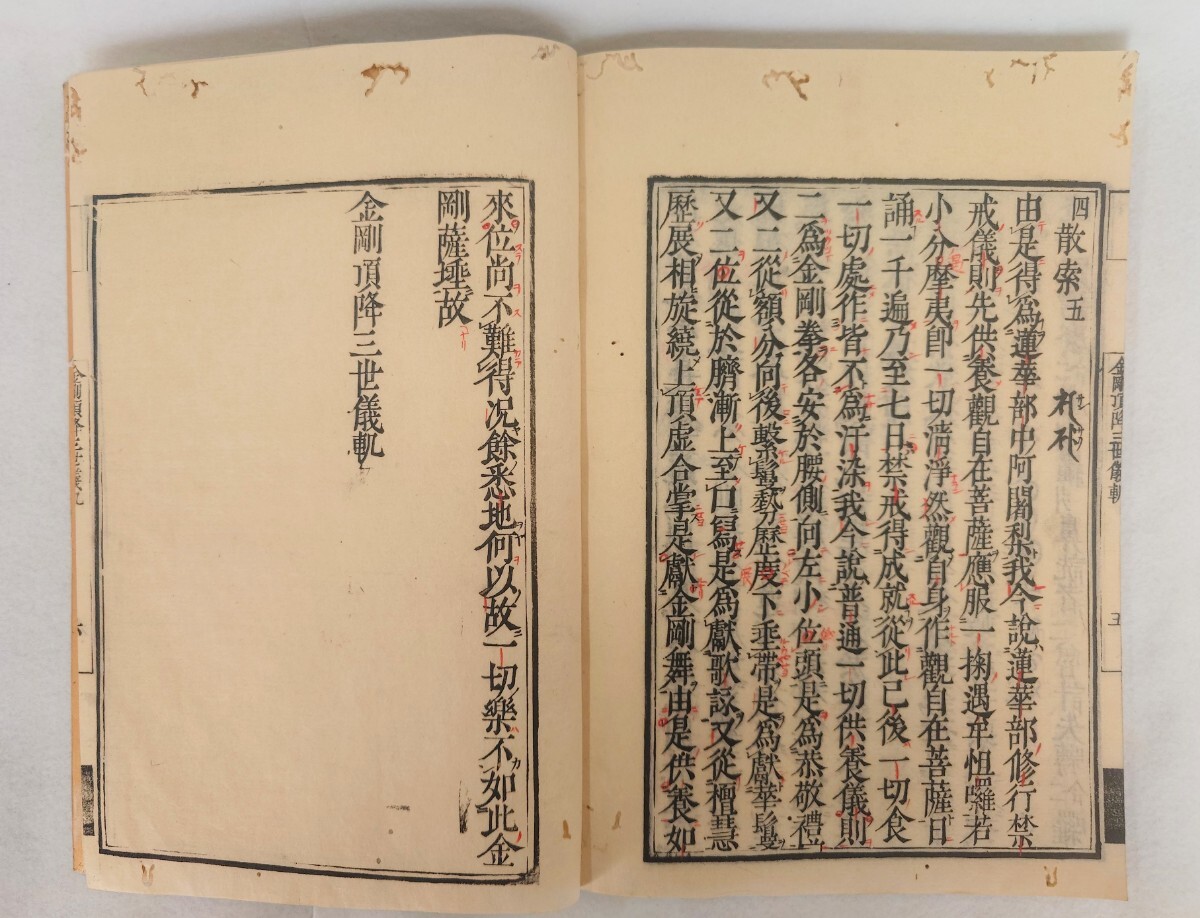 金剛頂降三世儀軌 五
四散索五
由是得爲蓮華部中阿闍梨我今說蓮華部修行禁
戒儀則先供養觀自在菩薩應服一掬遇牟怛囉若
小分摩夷卽一切淸淨然觀自身作觀自在菩薩日
誦一千遍乃至七日禁戒得成就從此已後一切食
一切處作皆不爲汙染我今說普通一切供養儀則
二爲金剛拳各安於腰側向左小位頭是爲恭敬禮
又二從額分向後繫鬘勢歷度下垂帶是爲獻華鬘
又二位從於臍漸上至口寫是爲獻歌詠又從檀慧
歷展相旋繞上頂虛合掌是獻金剛舞由是供養如
來位尚不難得况餘悉地何以故一切樂不如此金
剛薩埵故
金剛頂降三世儀軌